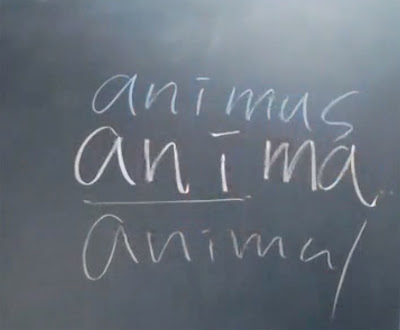 animus
anima
animal